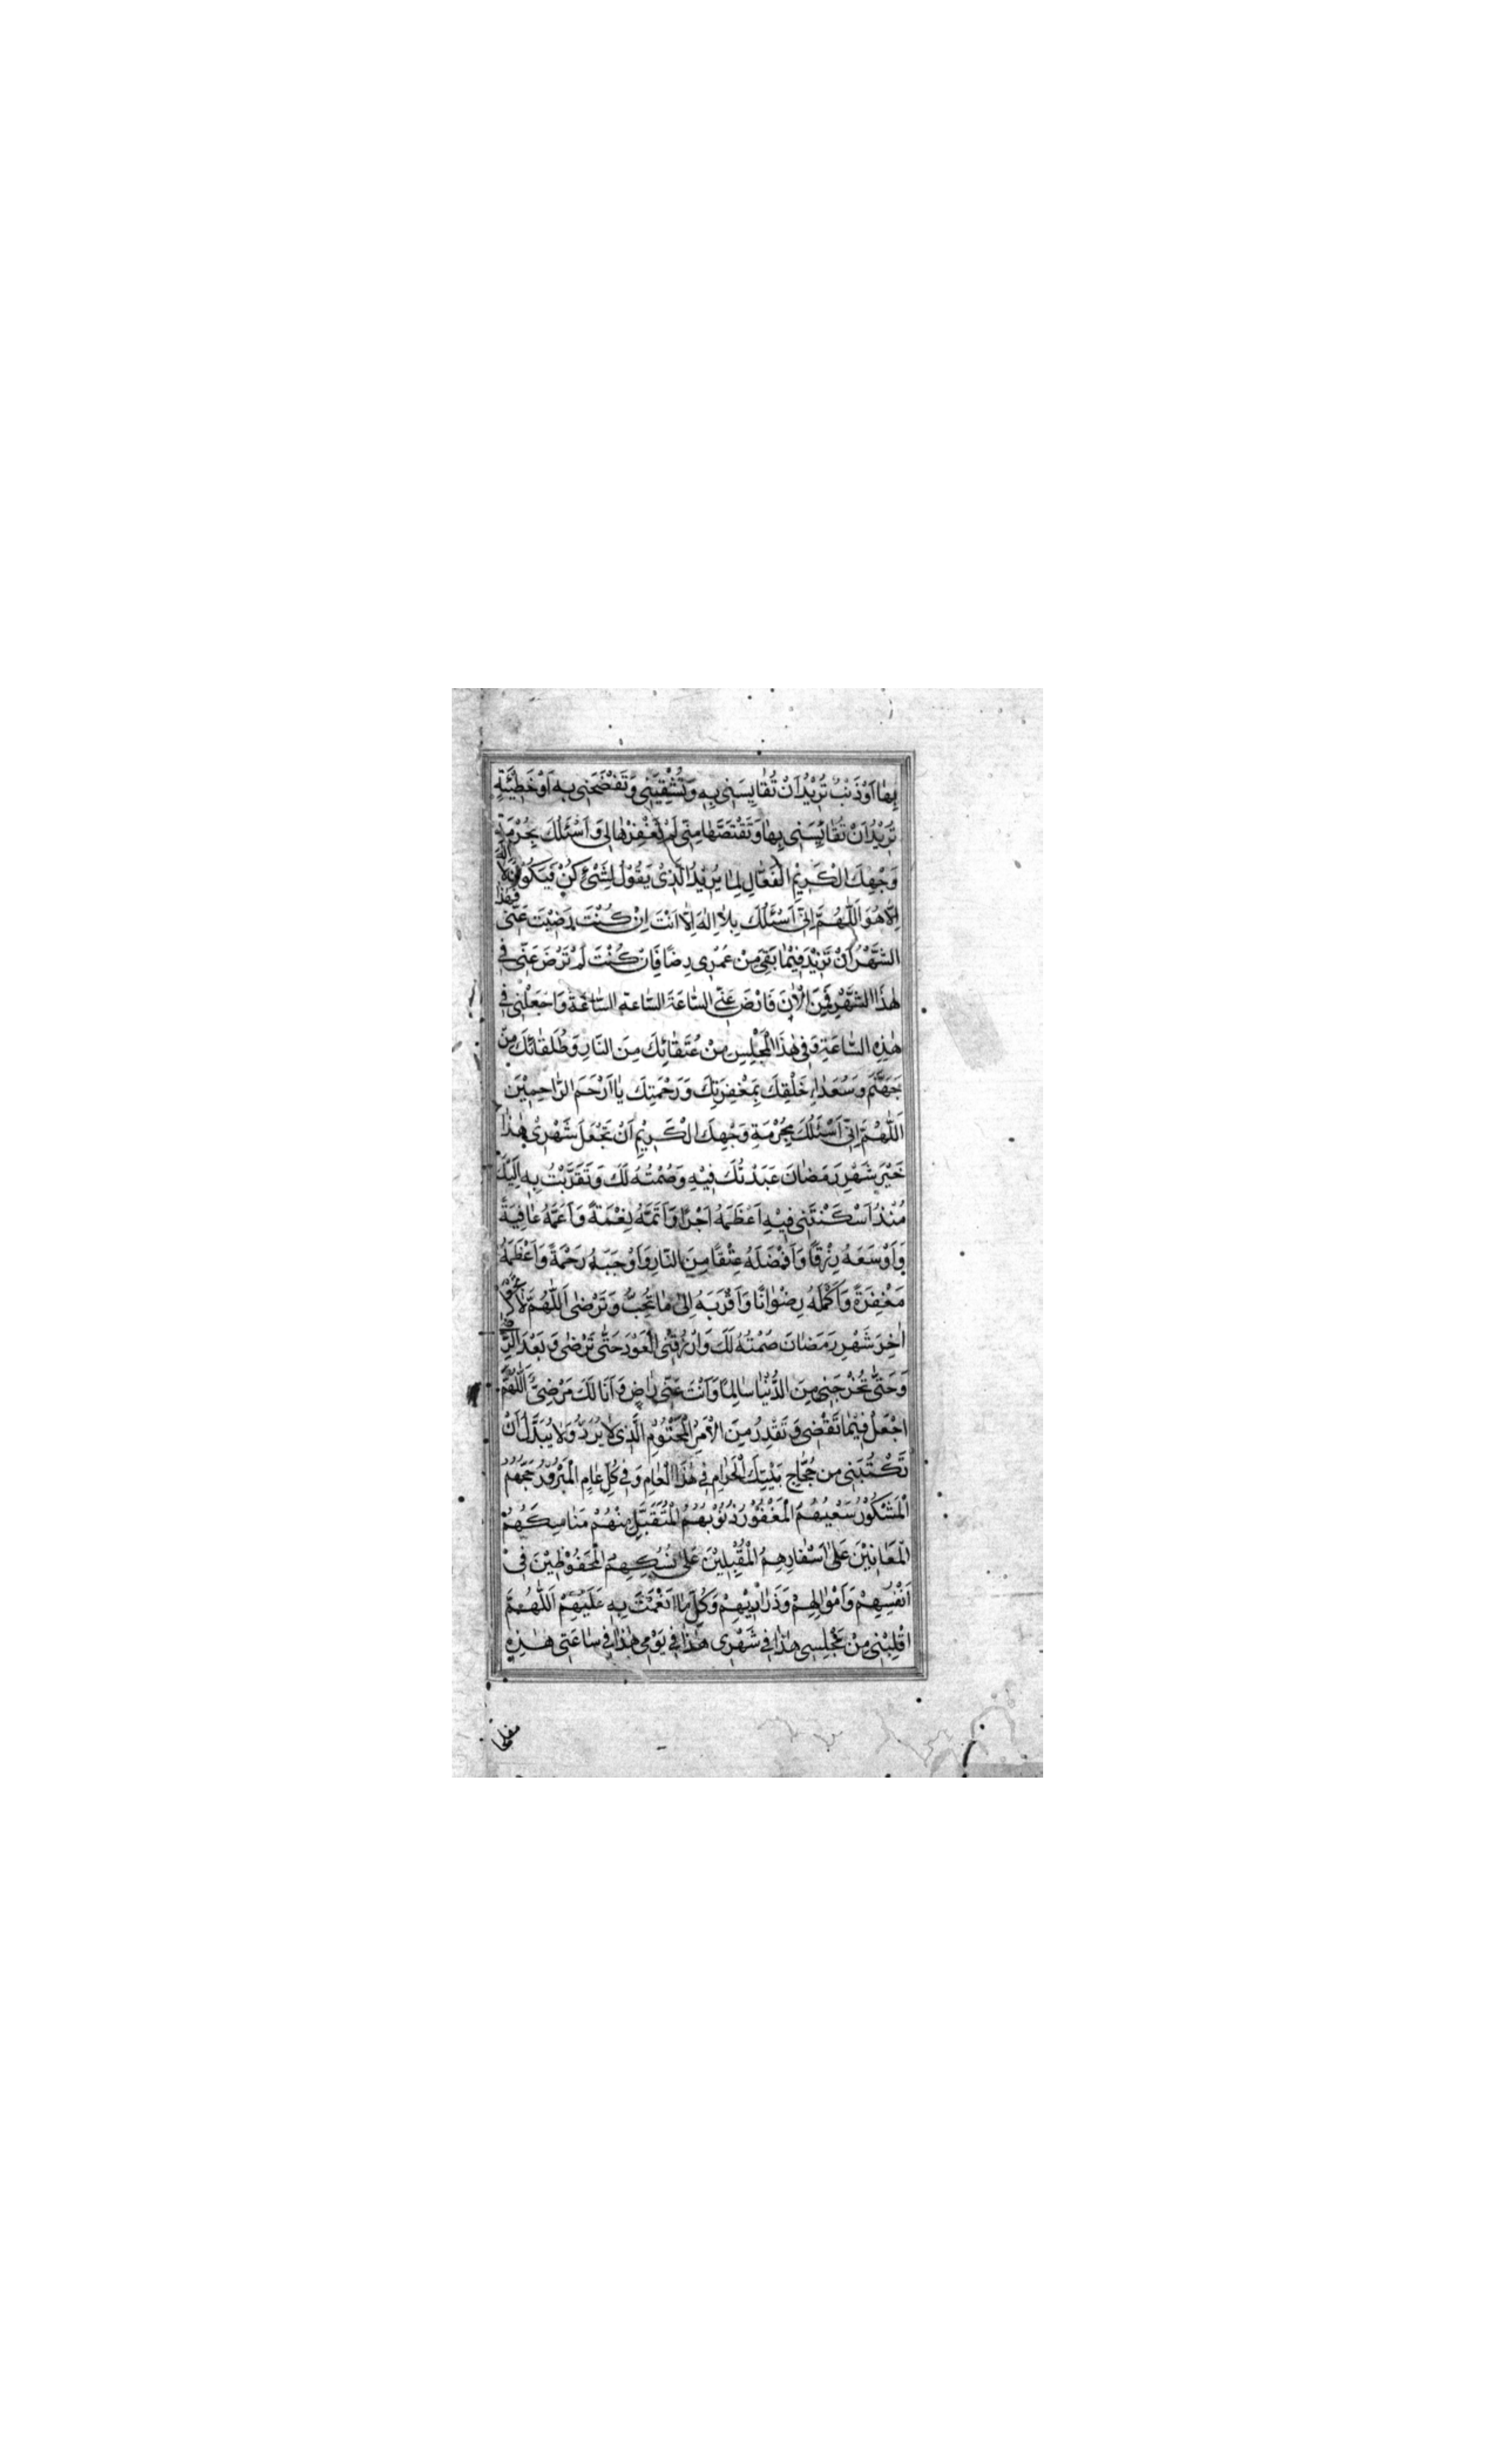 بِهٰا اَوْ ذَنْبٌ تُرِيْدُ اَنْ تُقٰايِسَنِى بِهِ وَ تُشْقِيَنِى وَ تَفْضَحَنِى بِهِ اَوْ خَطِيْئَةٍ
تُرِيْدُ اَنْ تُقٰايِسَنِى بِهٰا وَ تَقْتَصَّهٰا مِنِّى لَمْ تَغْفِرْهٰا لِى وَ اَسْئَلُكَ بِحُرْمَةِ
وَجْهِكَ الْكَرِيْمِ الْفَعّٰالِ لِمٰا يُرِيْدُ الَّذِىْ يَقُوْلُ لِشَىْءٍ كُنْ فَيَكُوْنُ لٰا اِلٰهَ
اِلّٰا هُوَ اَللّٰهُمَّ اِنِّىْ اَسْئَلُكَ بِلٰا اِلٰهَ اِلّٰا اَنْتَ اِنْ كُنْتَ رَضِيْتَ عَنِّى فِى هٰذَا
الشَّهْرِ اَنْ تَزِيْدَ فِيْمٰا بَقِىَ مِنْ عُمْرِى رِضًا فَاِنْ كُنْتَ لَمْ تَرْضَ عَنِّى فِى
هٰذَا الشَّهْرِ فَمِنَ الْاٰنَ فَارْضَ عَنِّى السّٰاعَةَ السّٰاعَةَ السّٰاعَةَ وَاجْعَلْنِى فِى
هٰذِهِ السّٰاعَةِ وَ فِى هٰذَا الْمَجْلِسِ مِنْ عُتَقٰائِكَ مِنَ النّٰارِ وَ طُلَقٰائِكَ مِنْ
جَهَنَّمَ وَ سُعَدٰاءِ خَلْقِكَ بِمَغْفِرَتِكَ وَ رَحْمَتِكَ يٰا اَرْحَمَ الرّٰاحِمِيْنَ
اَللّٰهُمَّ اِنِّى اَسْئَلُكَ بِحُرْمَةِ وَجْهِكَ الْكَرِيْمِ اَنْ تَجْعَلَ شَهْرِى هٰذٰا
خَيْرَ شَهْرِ رَمَضٰانَ عَبَدْتُكَ فِيْهِ وَ صُمْتُهُ لَكَ وَ تَقَرَّبْتُ بِهِ اِلَيْكَ
مُنْذُ اَسْكَنْتَنِى فِيْهِ اَعْظَمَهُ اَجْرًا وَ اَتَمَّهُ نِعْمَةً وَ اَعَمَّهُ عٰافِيَةً
وَ اَوْسَعَهُ رِزْقًا وَ اَفْضَلَهُ عِتْقًا مِنَ النّٰارِ وَ اَوْجَبَهُ رَحْمَةً وَ اَعْظَمَهُ
مَغْفِرَةً وَ اَكْمَلَهُ رِضْوٰانًا وَ اَقْرَبَهُ اِلٰى مٰا تُحِبُّ وَ تَرْضٰى اَللّٰهُمَّ لٰا تَجْعَلْهُ
اٰخِرَ شَهْرِ رَمَضٰانَ صُمْتُهُ لَكَ وَ ارْزُقْنِى الْعَوْدَ حَتّٰى تَرْضٰى وَ بَعْدَ الرِّضٰا
وَ حَتّٰى تُخْرِجَنِى مِنَ الدُّنْيٰا سٰالِمًا وَ اَنْتَ عَنِّى رٰاضٍ وَ اَنَا لَكَ مَرْضِىٌّ اَللّٰهُمَّ
اجْعَلْ فِيْمٰا تَقْضِى وَ تُقَدِّرُ مِنَ الْاَمْرِ الْمَحْتُوْمِ الَّذِى لٰا يُرَدُّ وَ لٰا يُبَدَّلُ اَنْ
تَكْتُبَنِى مِنْ حُجّٰاجِ بَيْتِكَ الْحَرٰامِ فِى هٰذَا الْعٰامِ وَ فِى كُلِّ عٰامٍ الْمَبْرُوْرِ حَجُّهُمُ
الْمَشْكُوْرِ سَعْيُهُمُ الْمَغْفُوْرِ ذُنُوْبُهُمُ الْمُتَقَبَّلِ مِنْهُمْ مَنٰاسِكُهُمْ
الْمُعٰافِيْنَ عَلٰى اَسْفٰارِهِمُ الْمُقْبِلِيْنَ عَلٰى نُسُكِهِمُ الْمَحْفُوْظِيْنَ فِىْ
اَنْفُسِهِمْ وَ اَمْوٰالِهِمْ وَ ذَرٰارِيْهِمْ وَ كُلِّ مٰا اَنْعَمْتَ بِهِ عَلَيْهِمْ اَللّٰهُمَّ
اقْلِبْنِى مِنْ مَجْلِسِى هٰذٰا فِى شَهْرِى هٰذٰا فِى يَوْمِى هٰذٰا فِى سٰاعَتِى هٰذِهِ
مفلحا